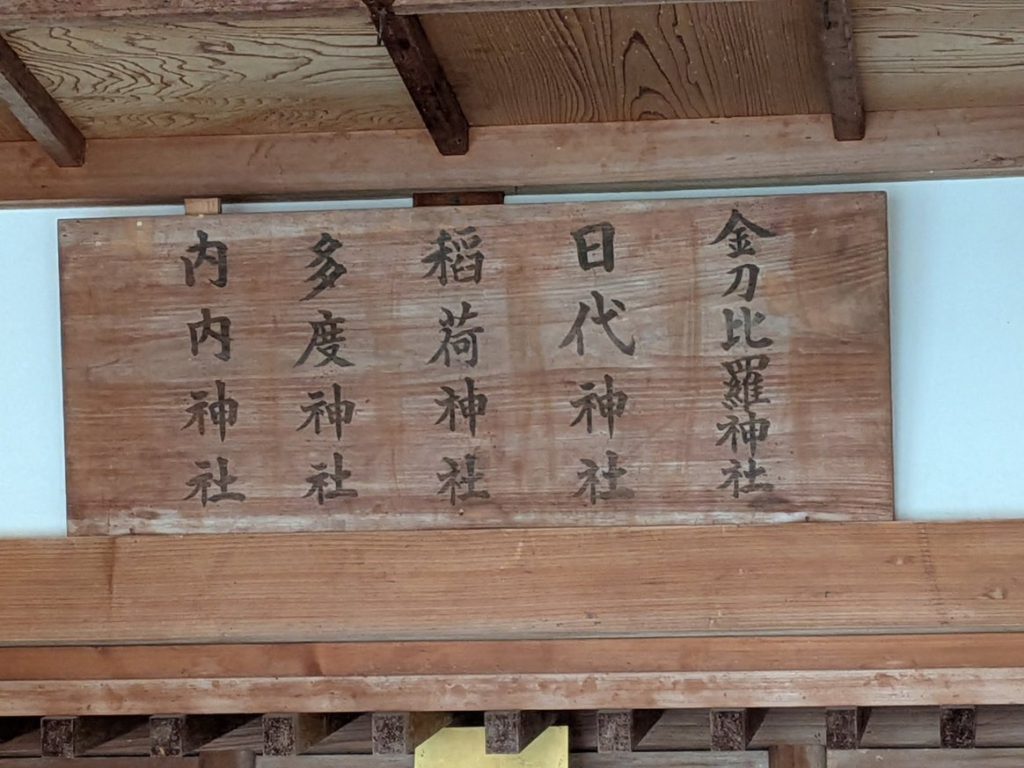 金刀比羅神社
日代神社
稲荷神社
多度神社
内内神社